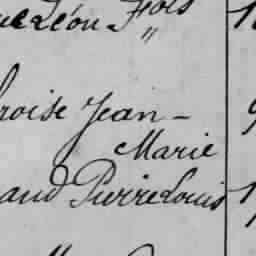 Léon Fçois
"
roise Jean-
Marie
aud Pierre Louis